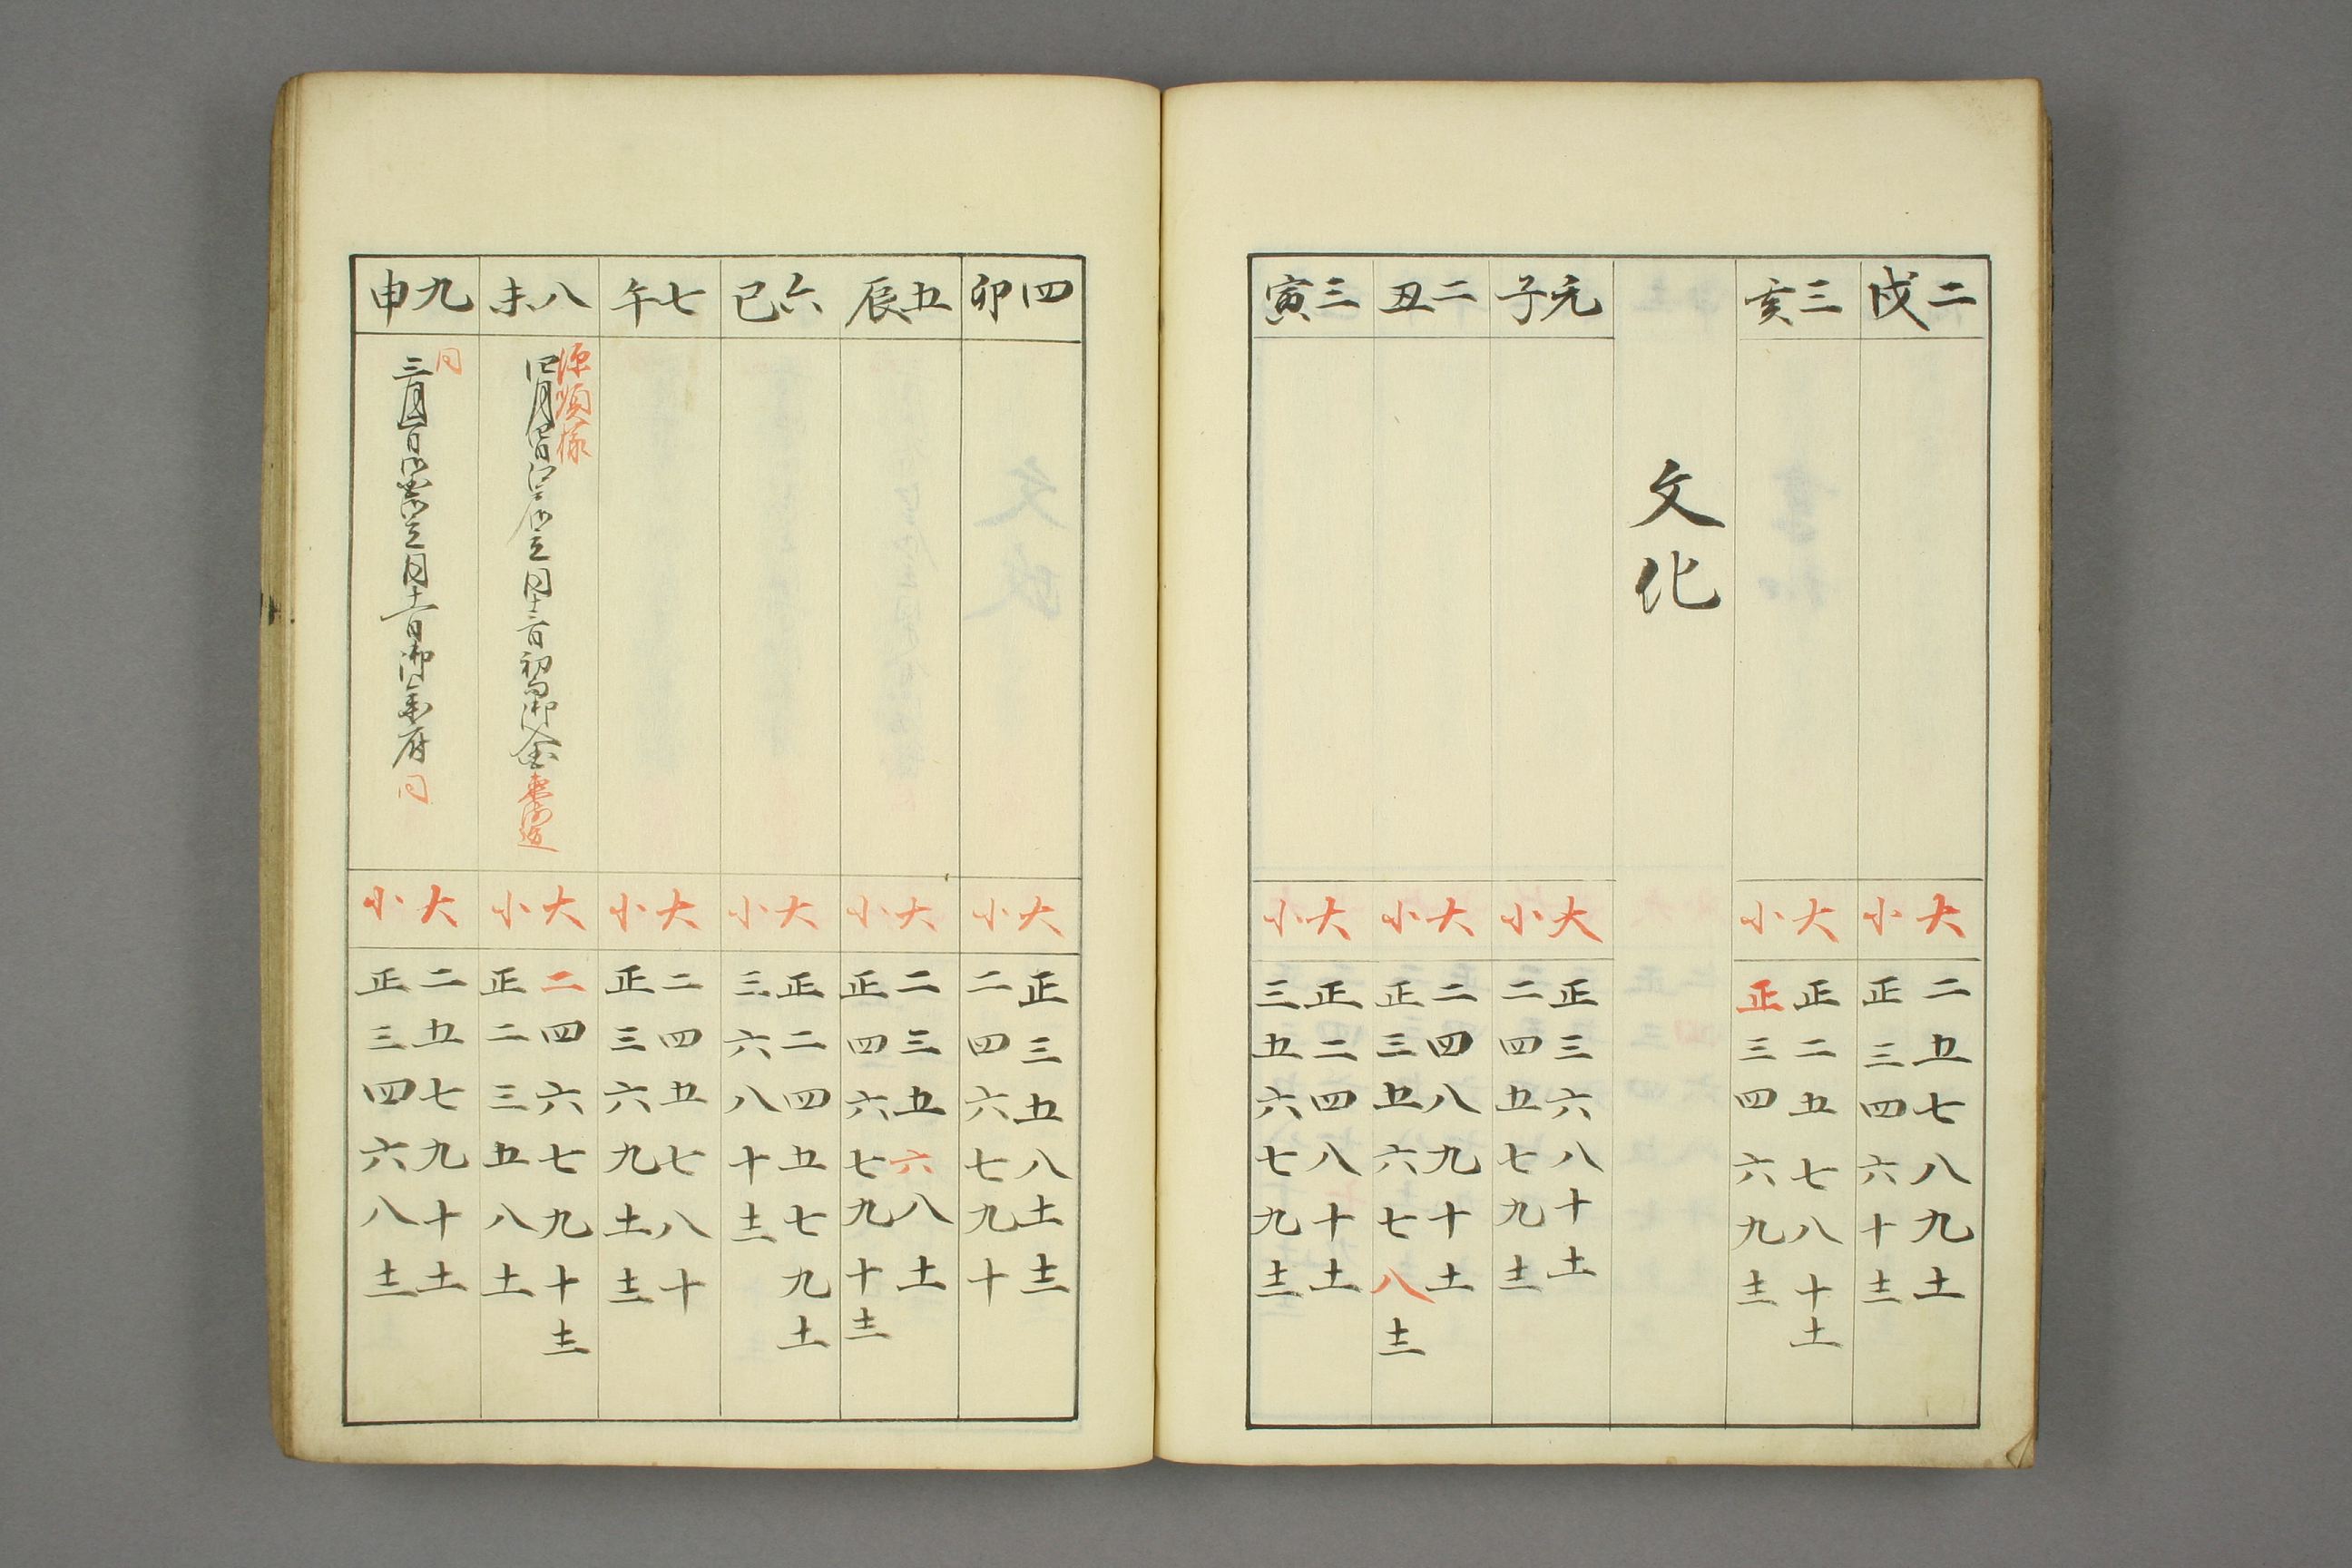 二戌
大 二五七八九士
小 正三四六十圭
三亥
大 正二五七八十士
小 正三四六九圭
文化
元子
大 正三六八十士
小 二四五七九圭
二丑
大 二四八九十士
小 正三五六七八圭
三寅
大 正二四八十士
小 三五六七九圭
四卯
大 正三五八士圭
小 二四六七九十
五辰
大 二三五六八士
小 正四六七九十圭
六巳
大 正二四五七九士
小 三六八十圭
七午
大 二四五七八十
小 正三六九士圭
八未
源順様
同十三日初而御登
東海道
大 二四六七九十圭
小 正二三五八士
九申
同
同十一日御着府
同
大 二五七九十士
小 正三四六八圭